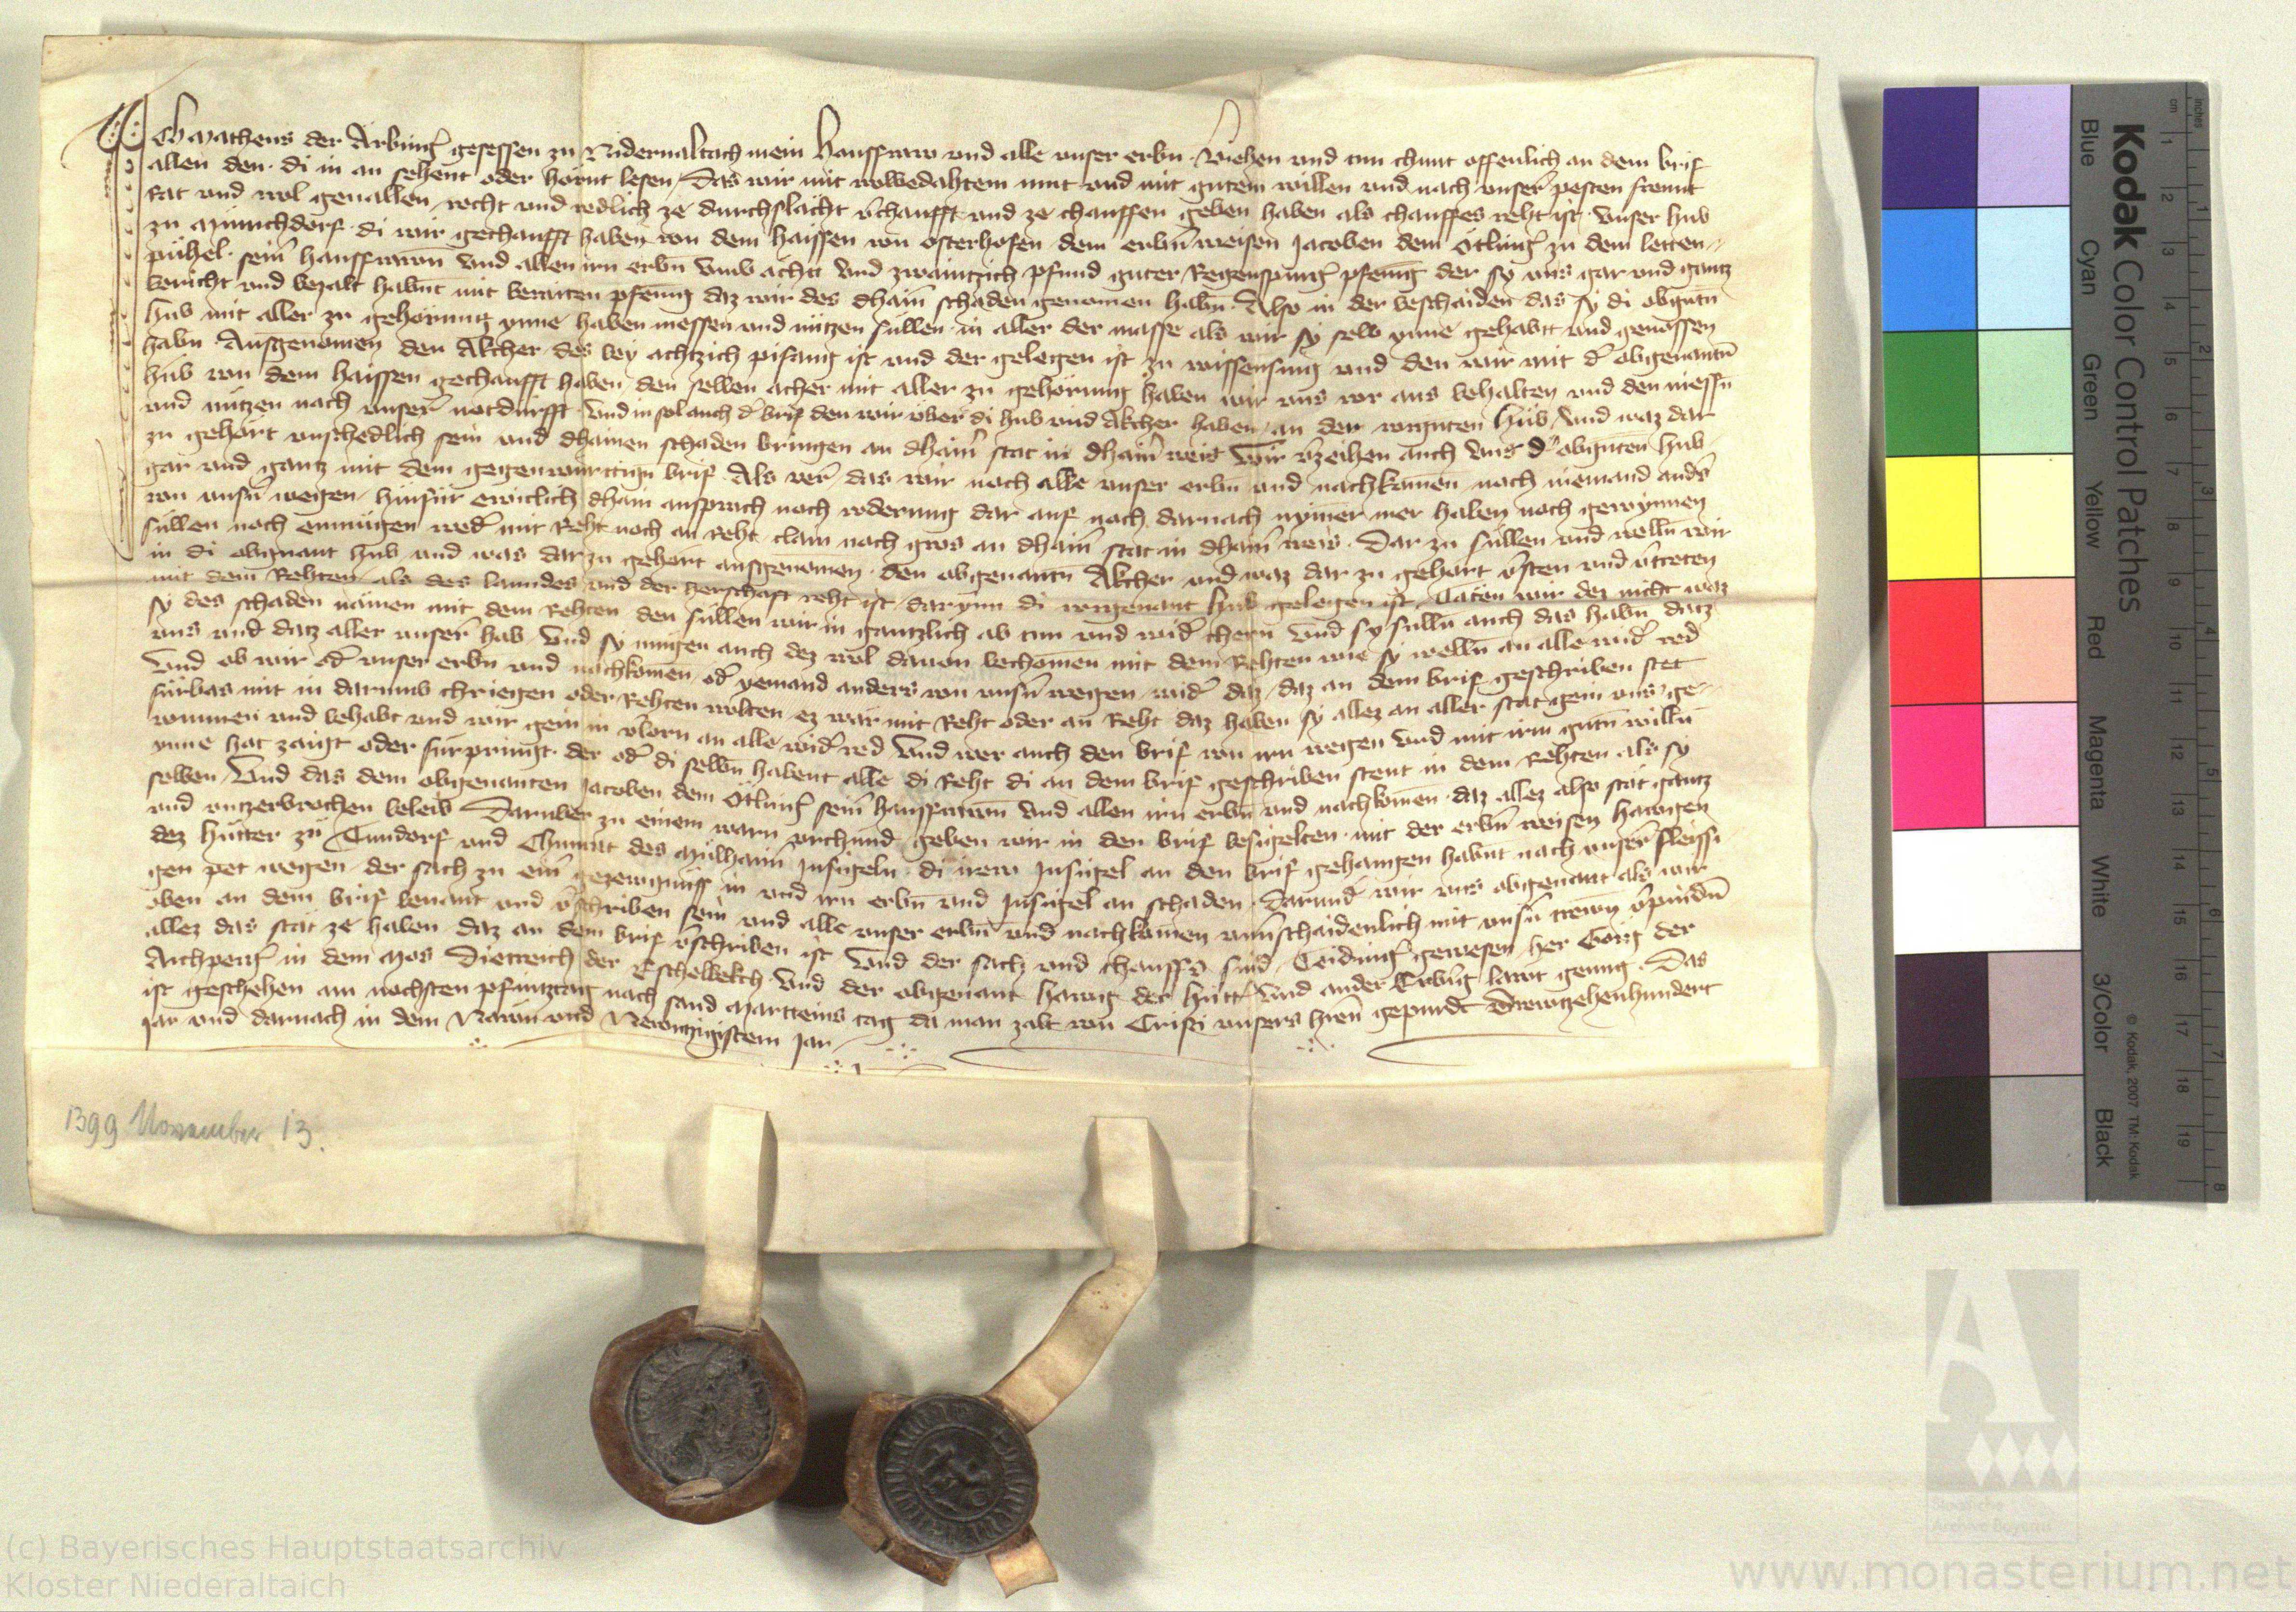 Ich Matheus der Ärbing̃ gesessen zu Nidernaltach mein hausfraw und alle unser erbn̄ · Viehen und tun chunt offenlich an dem brif
allen den · di in an sehent oder hörnt lesen / Das wir mit wolbedahtem mut und mit gutem willen und nach unser̄ pesten frewnt
rat und wol geuallen / recht und redlich ze durchslächt v̄chaufft und ze chauffen geben haben als chauffes reht ist · Unser hub
zu Münichdorf · di wir gechaufft haben von dem haissen von Osterhofen dem erbn̄ weisen Jacoben dem Ötling̃ zu dem letten
pühel · sein̄ hausfrawn̄ und allen irn erbn̄ umb acht und zwaintzich pfund guter Regenspurg̃ pfenn̄g der sy uns gar und gantz
bericht und bezalt habn̄t mit beraitten pfenn̄g daz wir des dhain̄ schaden genomen habn̄ · Also in der beschaiden das sy di obgn̄tn̄
hub mit aller zu gehörung ynne haben niessen und nützen süllen · in aller der masse als wir sy selb ynne gehabt und genossen
habn̄ · Ausgenomen den Akcher des bey achtzich pifang ist und der gelegen ist zu wissensing und den wir mit d̄ obgenantn̄
hub von dem haissen gechaufft haben den selben acher mit aller zu gehörung haben wir uns vor aus behalten und den niessn̄
und nützen nach unser̄ notdürfft · Und in sol auch d̄ brif den wir über di hub und Akcher haben / an der vorgn̄ten hub / und waz dar
zu gehört unschedlich sein und dhainen schaden bringen an dhain̄ stat in dhain̄ weis Wir v̄zeihen auch uns d̄ obgn̄ten hub
gar und gantz mit dem gegenwürttign̄ brif · Als ver̄ das wir noch alle unser erbn̄ und nachkomen̄ noch niemand anders
von unsn̄ wegen / hinfür ewiclich dhain ansprach noch voderung dar auf noch darnach nym̄er mer haben noch gewynnen
süllen noch enmügen wed̄ mit Reht noch an Reht clain noch gros an dhain̄ stat in dhain̄ weis · Dar zu süllen und welln̄ wir
in di obgnant hub und was dar zu gehört ausgenomen · den obgenantn̄ Akcher und waz dar zu gehört v̄sten und v̄treten
mit dem Rehten als des lanndes und der herschaft reht ist / darynn di vorgenant hub gelegen ist · Täten wir dez nicht waz
sy des schaden nämen mit dem Rehten den süllen wir in gäntzlich ab tun und wid̄ chern · Und sy sulln̄ auch das habn̄ datz
uns und datz aller unser̄ hab Und sy mügen auch dez wol dauon bechomen mit dem Rehten wie sy welln̄ an alle wid̄ red
Und ob wir od̄ unser erbn̄ und nachkomen̄ · od̄ yemand anders von unsn̄ wegen / wid̄ daz / daz an dem brif geschriben stet
fürbas mit in darumb chriegen oder Rehten wolten / ez wär mit Reht oder an Reht daz haben sy allez an aller stat gein uns ge-
wunnen und behabt und wir gein in v̄lorn an alle wid̄ red Und wer auch den brif von irn wegen und mit irm gutn̄ willn̄
ynne hat zaigt oder fürpringt · der od̄ di selbn̄ habent alle di Reht di an dem brif geschriben stent in dem Rehten als sy
selben / Und das dem obgenanten Jacoben dem Ötling̃ sein̄ hausfrawn̄ und allen irn erbn̄ und nachkomen̄ · daz allez also stät gantz
und untzerbrochen beleib Darüber zu einem warn̄ urchund geben wir in den brif besigelten · mit der erbn̄ weisen hawgen
dez hutter zu Tundorf und Chunrat des Mülhaim̄ Insigeln · di irew Insigel an den brif gehangen habn̄t nach unser̄ fleissi
gen pet wegen / der sach zu ein̄ gezewgnüss in und irn erbn̄ und Insigel an schaden · darund̄ wir uns obgenant als wir
oben an dem brif benant und v̄schriben sein und alle unser erbn̄ und nachkomen unu̇schaidenlich mit unsn̄ trewn̄ v̄pindn̄
allez das stät ze haben daz an dem brif v̄schriben ist Und der sach und chauffs sind Teiding̃ gewesen / her Görig der
Aichperg̃ in dem Mos Dietreich der Eschelbekch Und der obgenant hawg der hutt̃ und ander Erbn̄g lawt genug · Das
ist geschehen am nächsten pfintztag nach sand Marteins tag da man zalt von Cristi unsers hr̄en gepurdt Drewtzehenhundert
jar und darnach in dem Nawn und Newntzigistem jar
1399 November 13.
Kodak Color Control Patches
Blue Cyan Green Yellow Red Magenta White 3/Color Black
© Kodak, 2007 TM: Kodak
cm 1 2 3 4 5 6 7 8 9 10 11 12 13 14 15 16 17 18 19
inches 1 2 3 4 5 6 7 8
Staatliche
Archive Bayerns
(c) Bayerisches Hauptstaatsarchiv
Kloster Niederaltaich
www.monasterium.net